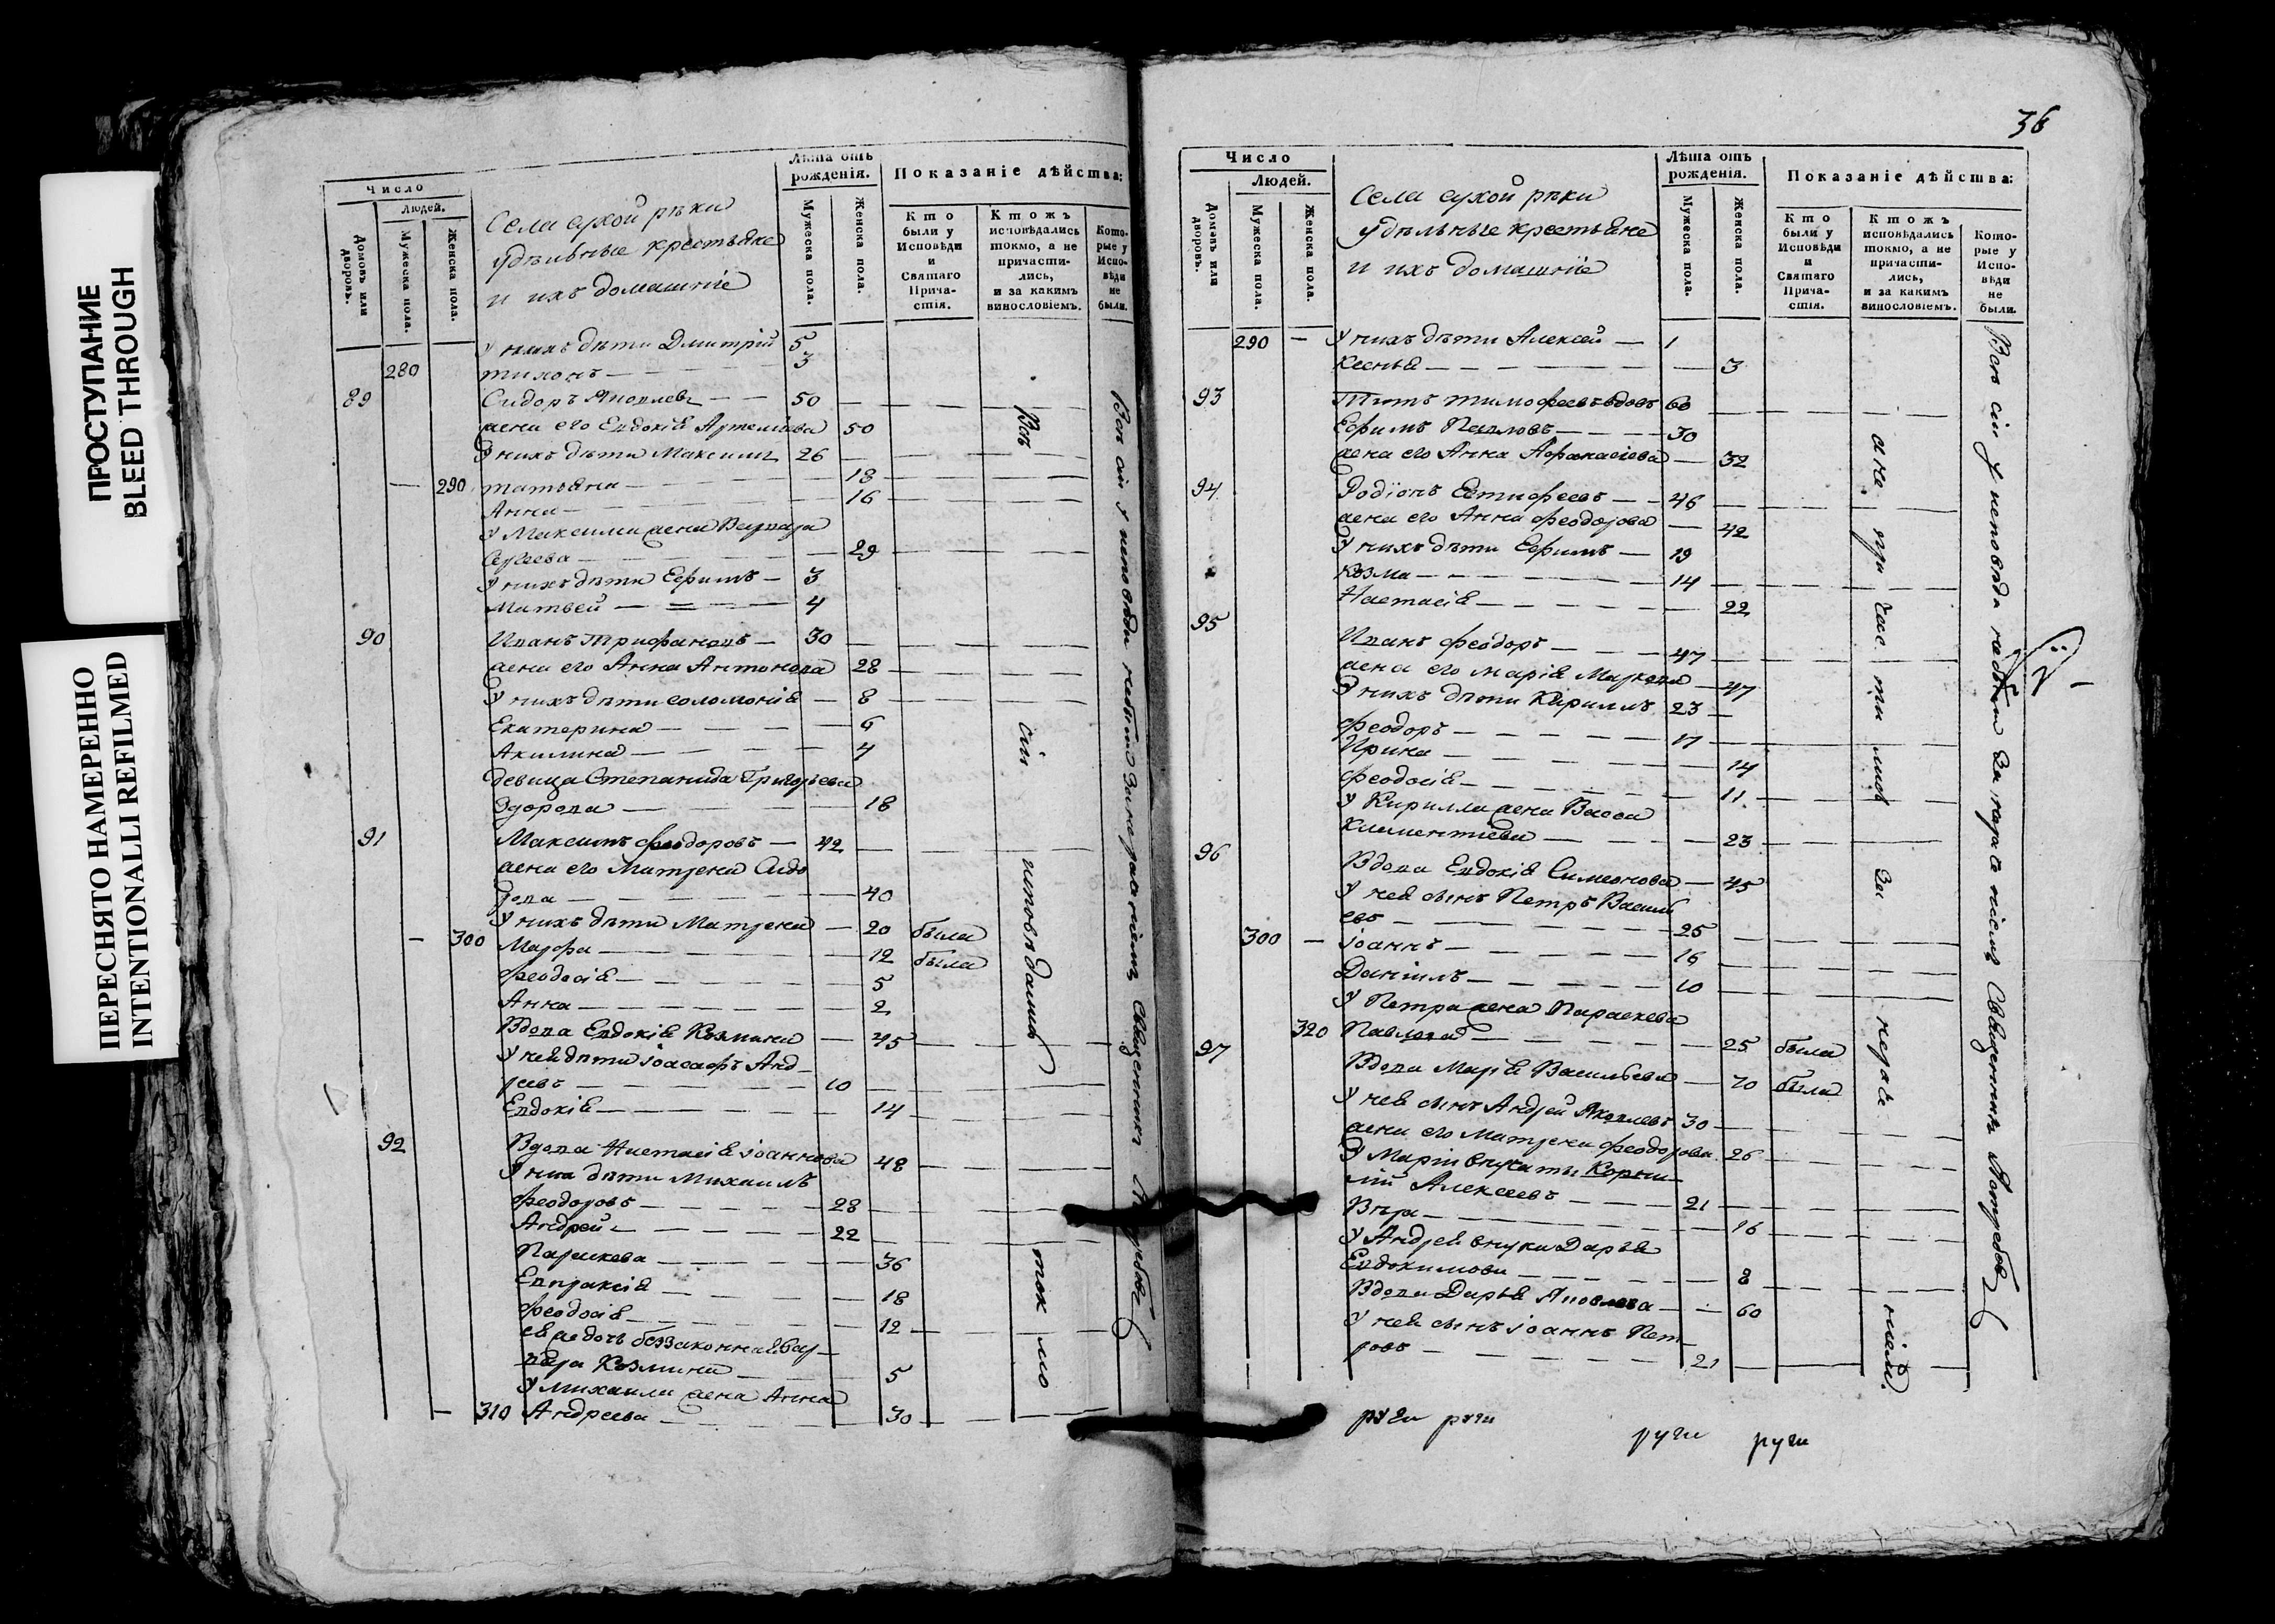 ПРОСТУПАНИЕ
BLEED THROUGH
ПЕРЕСНЯТО НАМЕРЕННО
INTENTIONALLI REFILMED
Число
Людей.
Домовъ или дворовъ.
Мужеска пола.
Женска пола.
Села сухой рѣки
удѣльные крестьяне
и ихъ домашніе
Лѣта отъ рожденія.
Мужеска пола.
Женска пола.
Показаніе дѣйства:
Кто были у Исповѣди и Святаго Причастія.
Ктожъ исповѣдались токмо, а не причастились, и за какимъ винословіемъ.
Которые у Исповѣди не были.
У нихъ дѣти Дмитрій 5
280 Тихонъ — 3
89 Сидоръ Яковлевъ — 50
жена его Евдокія Артемьева 50
У нихъ дѣти Максимъ 26
— 290 Татьяна — 18
Анна — 16
У Максима жена Варвара
Сергеева — 29
У нихъ дѣти Ефимъ — 3
Матвей — 4
90 Иванъ Трифановъ — 30
жена его Анна Антонова 28
У нихъ дѣти Соломонія — 8
Екатерина — 6
Акилина — 4
девица Степанида Григорьева
18
91 Максимъ Феодоровъ — 42
жена его Матрена Сидо
рова — 40
У нихъ дѣти Матрена — 20 была
— 300 Марфа — 12 была
Феодосія — 5
Анна — 2
Вдова Евдокія Козмина — 45
У ней дѣти Іоасафъ Анд
реевъ — 10
Евдокія — 14
92 Вдова Настасія Іоаннова 48
У нея дѣти Михаилъ
Феодоровъ — 28
Андрей — 22
Параскева — 36
Евпраксія — 18
Феодосія — 12
ея же дочь беззаконная Вар
вара Козмина — 5
У Михаила жена Анна
— 310 Андреева — 30
Всѣ сіи исповѣдались токмо
Всѣ сіи у исповѣди небыли за нераченіемъ Священникъ Ястребовъ
36
Число
Людей.
Домовъ или дворовъ.
Мужеска пола.
Женска пола.
Села сухой рѣки
удѣльные крестьяне
и ихъ домашніе
Лѣта отъ рожденія.
Мужеска пола.
Женска пола.
Показаніе дѣйства:
Кто были у Исповѣди и Святаго Причастія.
Ктожъ исповѣдались токмо, а не причастились, и за какимъ винословіемъ.
Которые у Исповѣди не были.
290 — У нихъ дѣти Алексей — 1
Ксенья — 3
93 Титъ Тимофеевъ вдовъ 60
Ефимъ Павловъ — 30
жена его Анна Афанасіева — 32
94 Родіонъ Евтифеевъ — 46
жена его Анна Феодорова — 42
У нихъ дѣти Ефимъ — 19
Козма — 14
Настасія — 22
95 Иванъ Феодоръ — 47
жена его Марія Маркова — 47
У нихъ дѣти Кириллъ 23 —
Феодоръ — 17
Ирина — 14
Феодосія — 11
У Кирилла жена Васса
Климентіева — 23
96 Вдова Евдокія Симеонова — 45
У ней сынъ Петръ Василь
евъ — 25
300 — Іоаннъ — 16
Даніилъ — 10
У Петра жена Параскева
320 Павлова — 25 была
97 Вдова Марья Васильева — 70 была
У ней сынъ Андрей Яковлевъ 30 —
жена его Матрена Феодорова 26
У Маріи внучаты Корни
лій Алексеевъ — 21
Вѣра — 16
У Андрея внука Дарья
Евдокимова — 8
Вдова Дарья Яковлева — 60
У ней сынъ Іоаннъ Пет
ровъ — 21
а не причастились за нераченіемъ.
Всѣ сіи у исповѣди небыли за нераченіемъ Священникъ Ястребовъ
руги руги руги руги